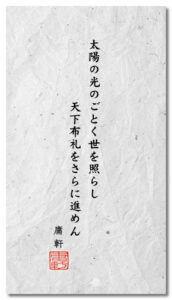 太陽の光のごとく世を照らし
天下布礼をさらに進めん
庸軒